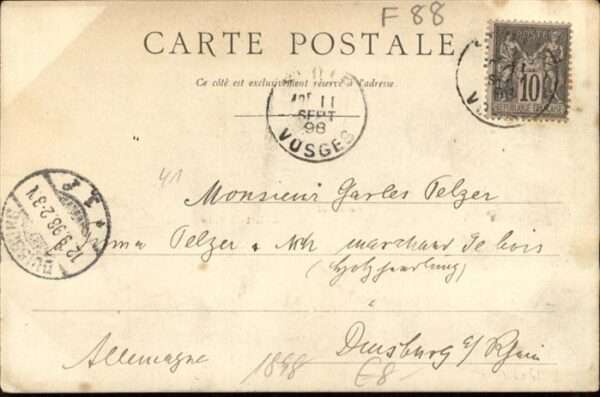 F 88
CARTE POSTALE
Ce côté est exclusivement réservé à l'adresse
POSTE
10
RÉPUBLIQUE FRANÇAISE
11
SEPT
98
VOSGES
41
12.9.98.2-3N
DUISBURG
Monsieur Garles Pelzer
Pelzer & marchand de bois
(Holzhandlung)
à
Duisburg a/ Rhein
Allemagne
1898
E8